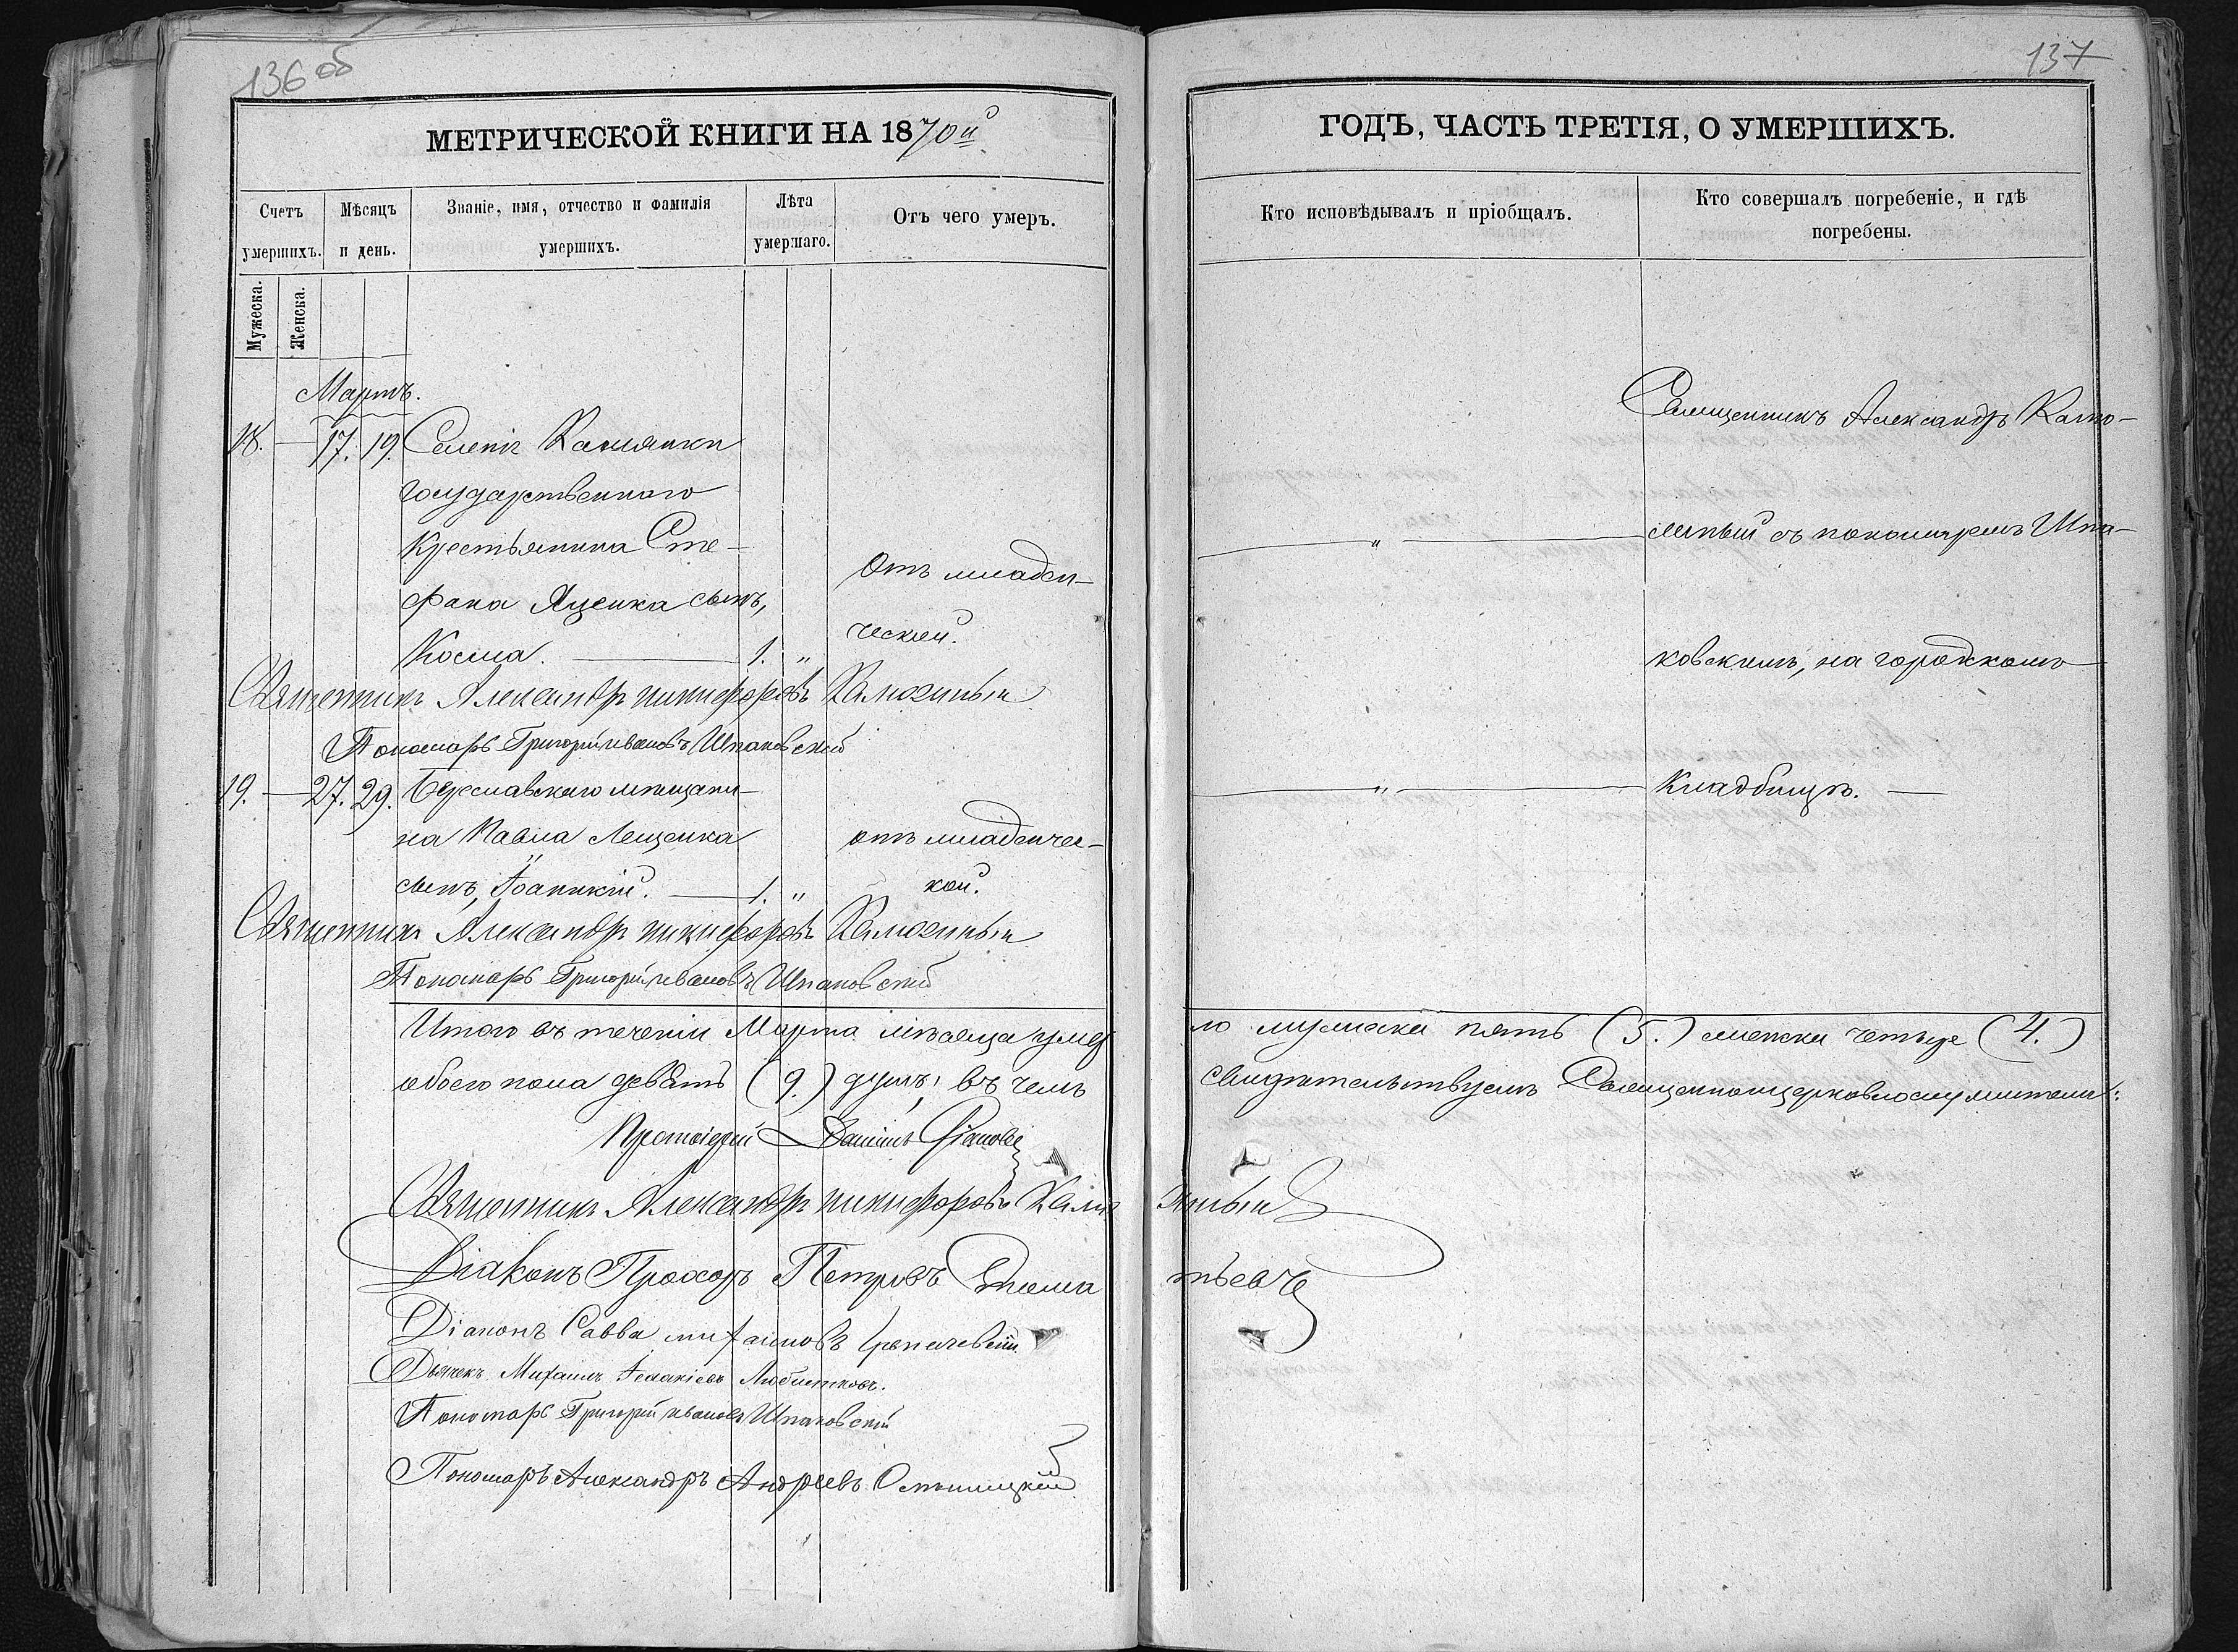 136 об
МЕТРИЧЕСКОЙ КНИГИ НА 1870й
Счетъ умершихъ.
Мѣсяцъ и день.
Званіе, имя, отчество и фамилія умершихъ.
Лѣта умершаго.
Отъ чего умеръ.
Мужеска.
Женска.
Мартъ.
18. — 17. 19. Селенія Каменки
государственнаго
крестьянина Сте-
фана Яценка сынъ,
Косма. — 1. "
Отъ младен-
ческой.
Священникъ Александръ Никифоровъ Калюжный
Пономарь Григорій Ивановъ Шпаковскій
19. — 27. 29. Береславскаго мѣщани-
на Павла Лещенка
сынъ, Іоаникій. — 1. "
отъ младенчес-
кой.
Священникъ Александръ Никифоровъ Калюжный
Пономарь Григорій Ивановъ Шпаковскій
Итого въ теченіи Марта мѣсяца умер
обоего пола девять (9.) душъ; въ чемъ
Протоіерей
Священникъ Александръ Никифоровъ Калю
Діаконъ Прохоръ Петровъ
Діаконъ Савва
Дьячекъ Михаилъ
Пономарь Григорій Ивановъ Шпаковскій
Пономарь Александръ Андреевъ
137
ГОДЪ, ЧАСТЬ ТРЕТІЯ, О УМЕРШИХЪ.
Кто исповѣдывалъ и пріобщалъ.
Кто совершалъ погребеніе, и гдѣ погребены.
Священникъ Александръ Калю-
— " — жный съ пономаремъ Шпа-
ковскимъ, на городскомъ
— " — кладбищѣ. —
ло мужеска пять (5.) женска четыре (4.)
свидѣтельствуемъ Священноцерковнослужители:
жный
тьевъ